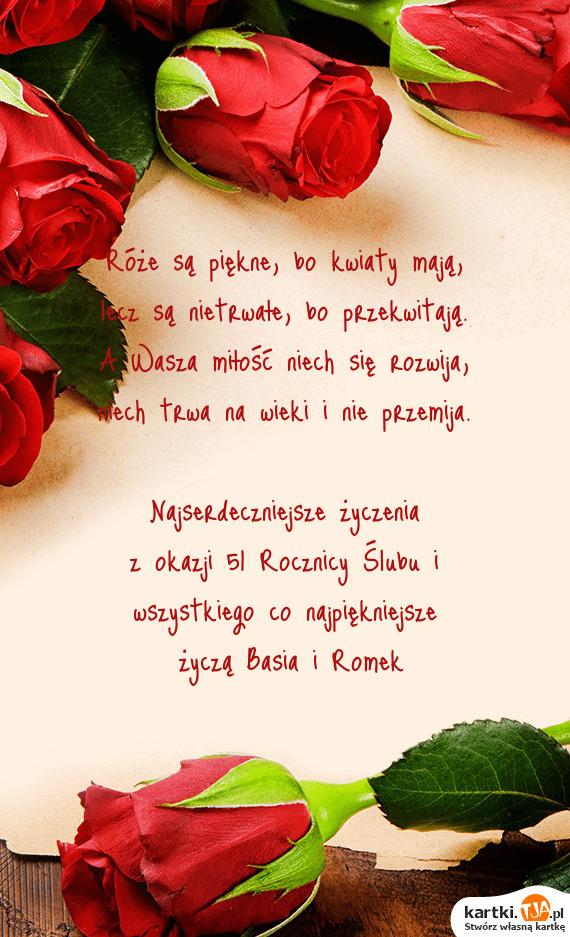 Róże są piękne, bo kwiaty mają,
lecz są nietrwałe, bo przekwitają.
A Wasza miłość niech się rozwija,
niech trwa na wieki i nie przemija.
Najserdeczniejsze życzenia
z okazji 51 Rocznicy Ślubu i
wszystkiego co najpiękniejsze
życzą Basia i Romek
kartki.TJA.pl
Stwórz własną kartkę